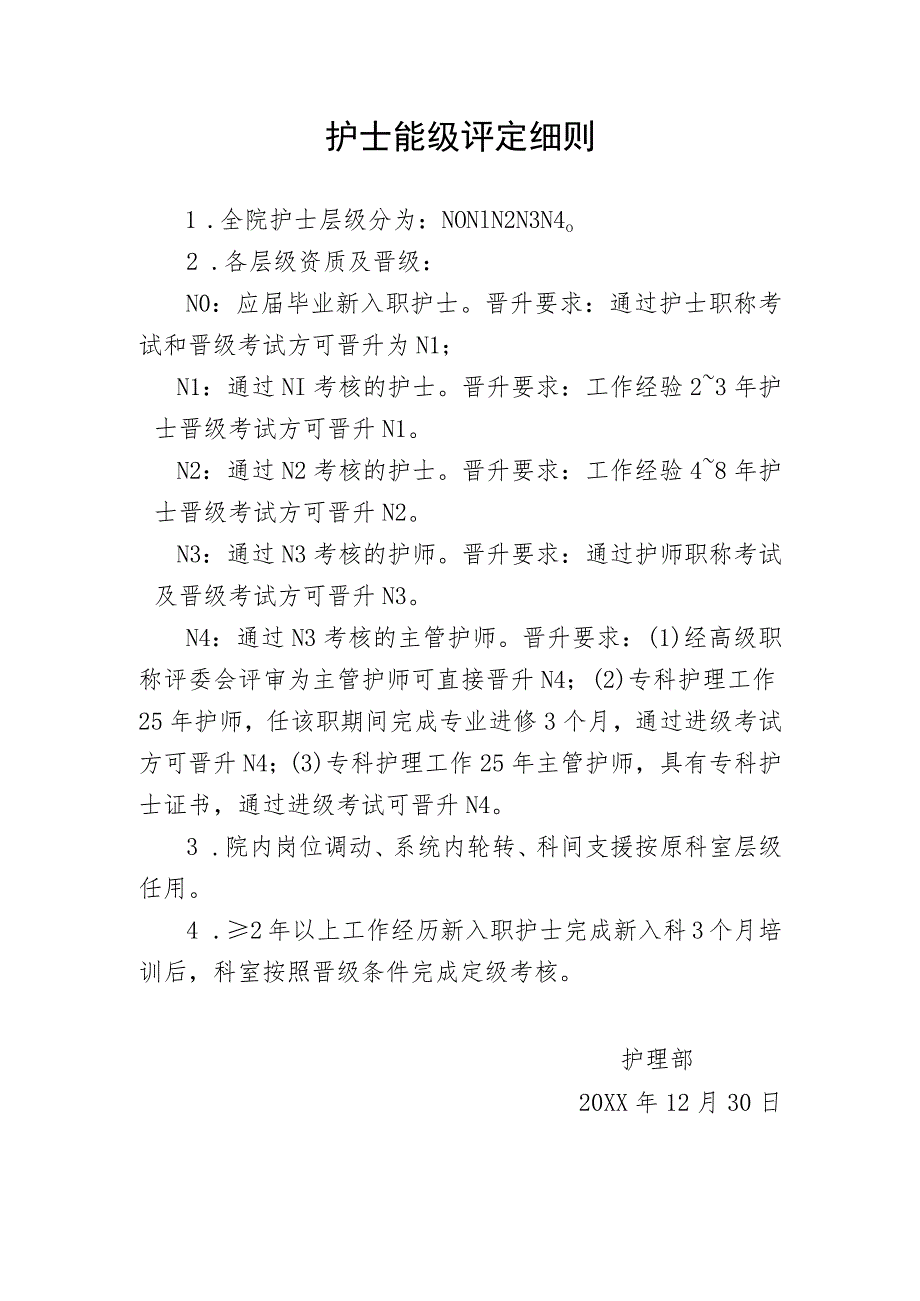 护士能级评定细则
1 .全院护士层级分为：NON1N2N3N4。
2 .各层级资质及晋级：
N0：应届毕业新入职护士。晋升要求：通过护士职称考
试和晋级考试方可晋升为N1；
N1：通过NI考核的护士。晋升要求：工作经验2~3年护
士晋级考试方可晋升N1。
N2：通过N2考核的护士。晋升要求：工作经验4~8年护
士晋级考试方可晋升N2。
N3：通过N3考核的护师。晋升要求：通过护师职称考试
及晋级考试方可晋升N3。
N4：通过N3考核的主管护师。晋升要求：(1)经高级职
称评委会评审为主管护师可直接晋升N4；(2)专科护理工作
25年护师，任该职期间完成专业进修3个月，通过进级考试
方可晋升N4；(3)专科护理工作25年主管护师，具有专科护
士证书，通过进级考试可晋升N4。
3 .院内岗位调动、系统内轮转、科间支援按原科室层级
任用。
4 .≥2年以上工作经历新入职护士完成新入科3个月培
训后，科室按照晋级条件完成定级考核。
护理部
20XX年12月30日